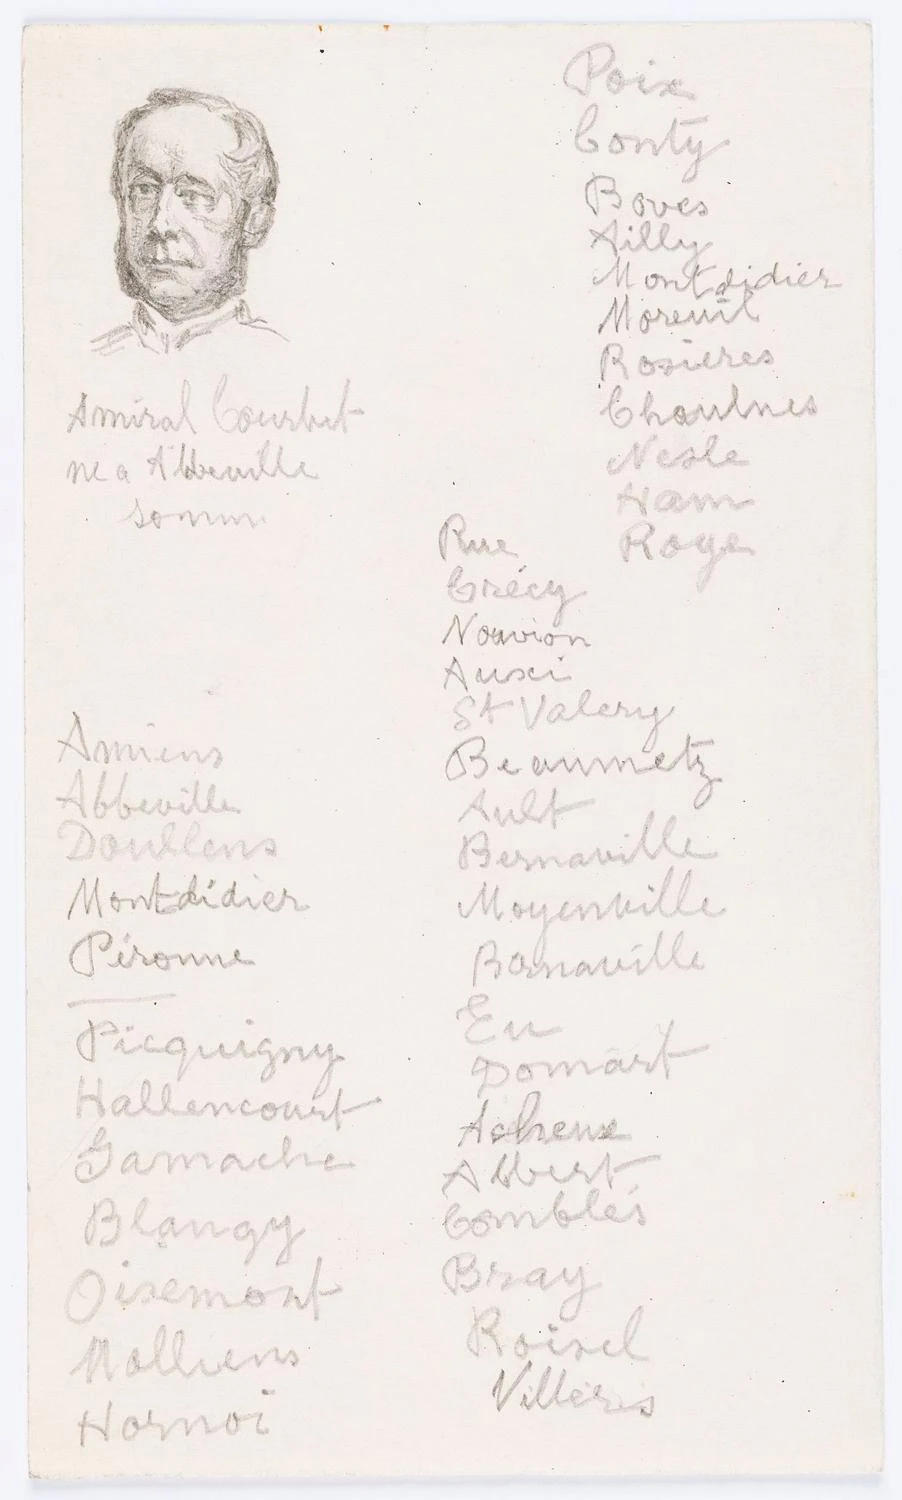 Amiral Courbet
ne a Abbeville
somm
Amiens
Abbeville
Doullens
Montdidier
Péronne
Picquigny
Hallencourt
Gamache
Blangy
Oisemont
Molliens
Hornoi
Rue
Crécy
Nouvion
Auxi
St Valery
Beaumetz
Ault
Bernaville
Moyenville
Bernaville
Eu
Domart
Acheux
Albert
Comblés
Bray
Roisel
Villéris
Poix
Conty
Boves
Ailly
Montdidier
Moreuil
Rosieres
Chaulnes
Nesle
Ham
Roye